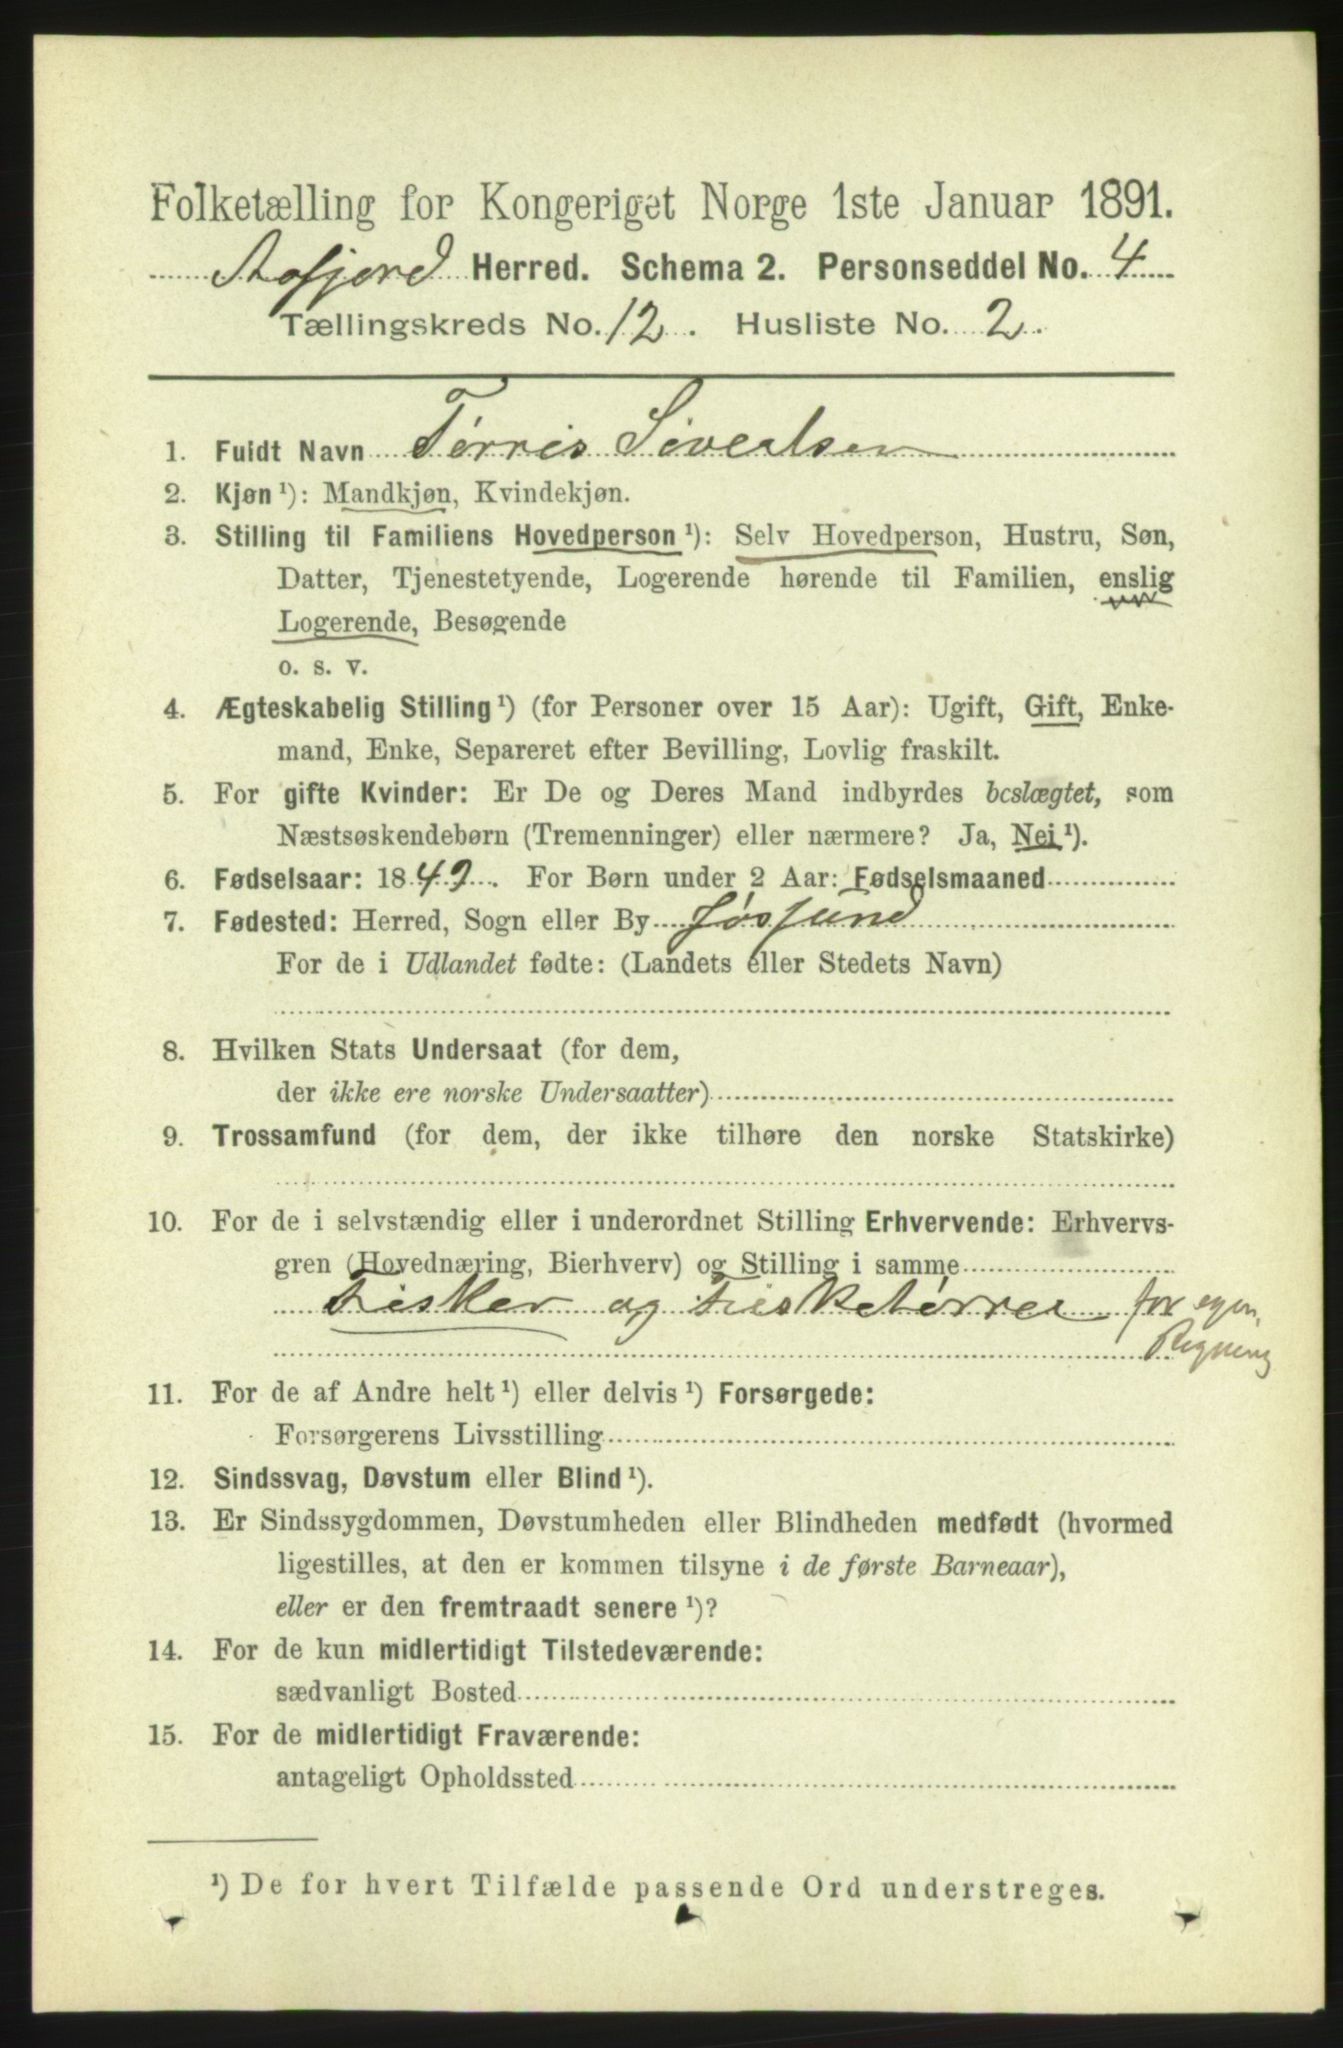 Folketælling for Kongeriget Norge 1ste Januar 1891.
Aafjord Herred. Schema 2. Personseddel No. 4
Tællingskreds No. 12. Husliste No. 2.
1. Fuldt Navn Tørris Sivertsen
2. Kjøn¹): Mandkjøn, Kvindekjøn.
3. Stilling til Familiens Hovedperson¹): Selv Hovedperson, Hustru, Søn,
Datter, Tjenestetyende, Logerende hørende til Familien, enslig
Logerende, Besøgende
o. s. v.
4. Ægteskabelig Stilling¹) (for Personer over 15 Aar): Ugift, Gift, Enke-
mand, Enke, Separeret efter Bevilling, Lovlig fraskilt.
5. For gifte Kvinder: Er De og Deres Mand indbyrdes beslægtet, som
Næstsøskendebørn (Tremenninger) eller nærmere? Ja, Nei¹).
6. Fødselsaar: 1849. For Børn under 2 Aar: Fødselsmaaned
7. Fødested: Herred, Sogn eller By Jøssund
For de i Udlandet fødte: (Landets eller Stedets Navn)
8. Hvilken Stats Undersaat (for dem,
der ikke ere norske Undersaatter)
9. Trossamfund (for dem, der ikke tilhøre den norske Statskirke)
10. For de i selvstændig eller i underordnet Stilling Erhvervende: Erhvervs-
gren (Hovednæring, Bierhverv) og Stilling i samme
Fisker og Fisketørrer for egen
Regning
11. For de af Andre helt¹) eller delvis¹) Forsørgede:
Forsørgerens Livsstilling
12. Sindssvag, Døvstum eller Blind¹).
13. Er Sindssygdommen, Døvstumheden eller Blindheden medfødt (hvormed
ligestilles, at den er kommen tilsyne i de første Barneaar),
eller er den fremtraadt senere¹)?
14. For de kun midlertidigt Tilstedeværende:
sædvanligt Bosted
15. For de midlertidigt Fraværende:
antageligt Opholdssted
¹) De for hvert Tilfælde passende Ord understreges.